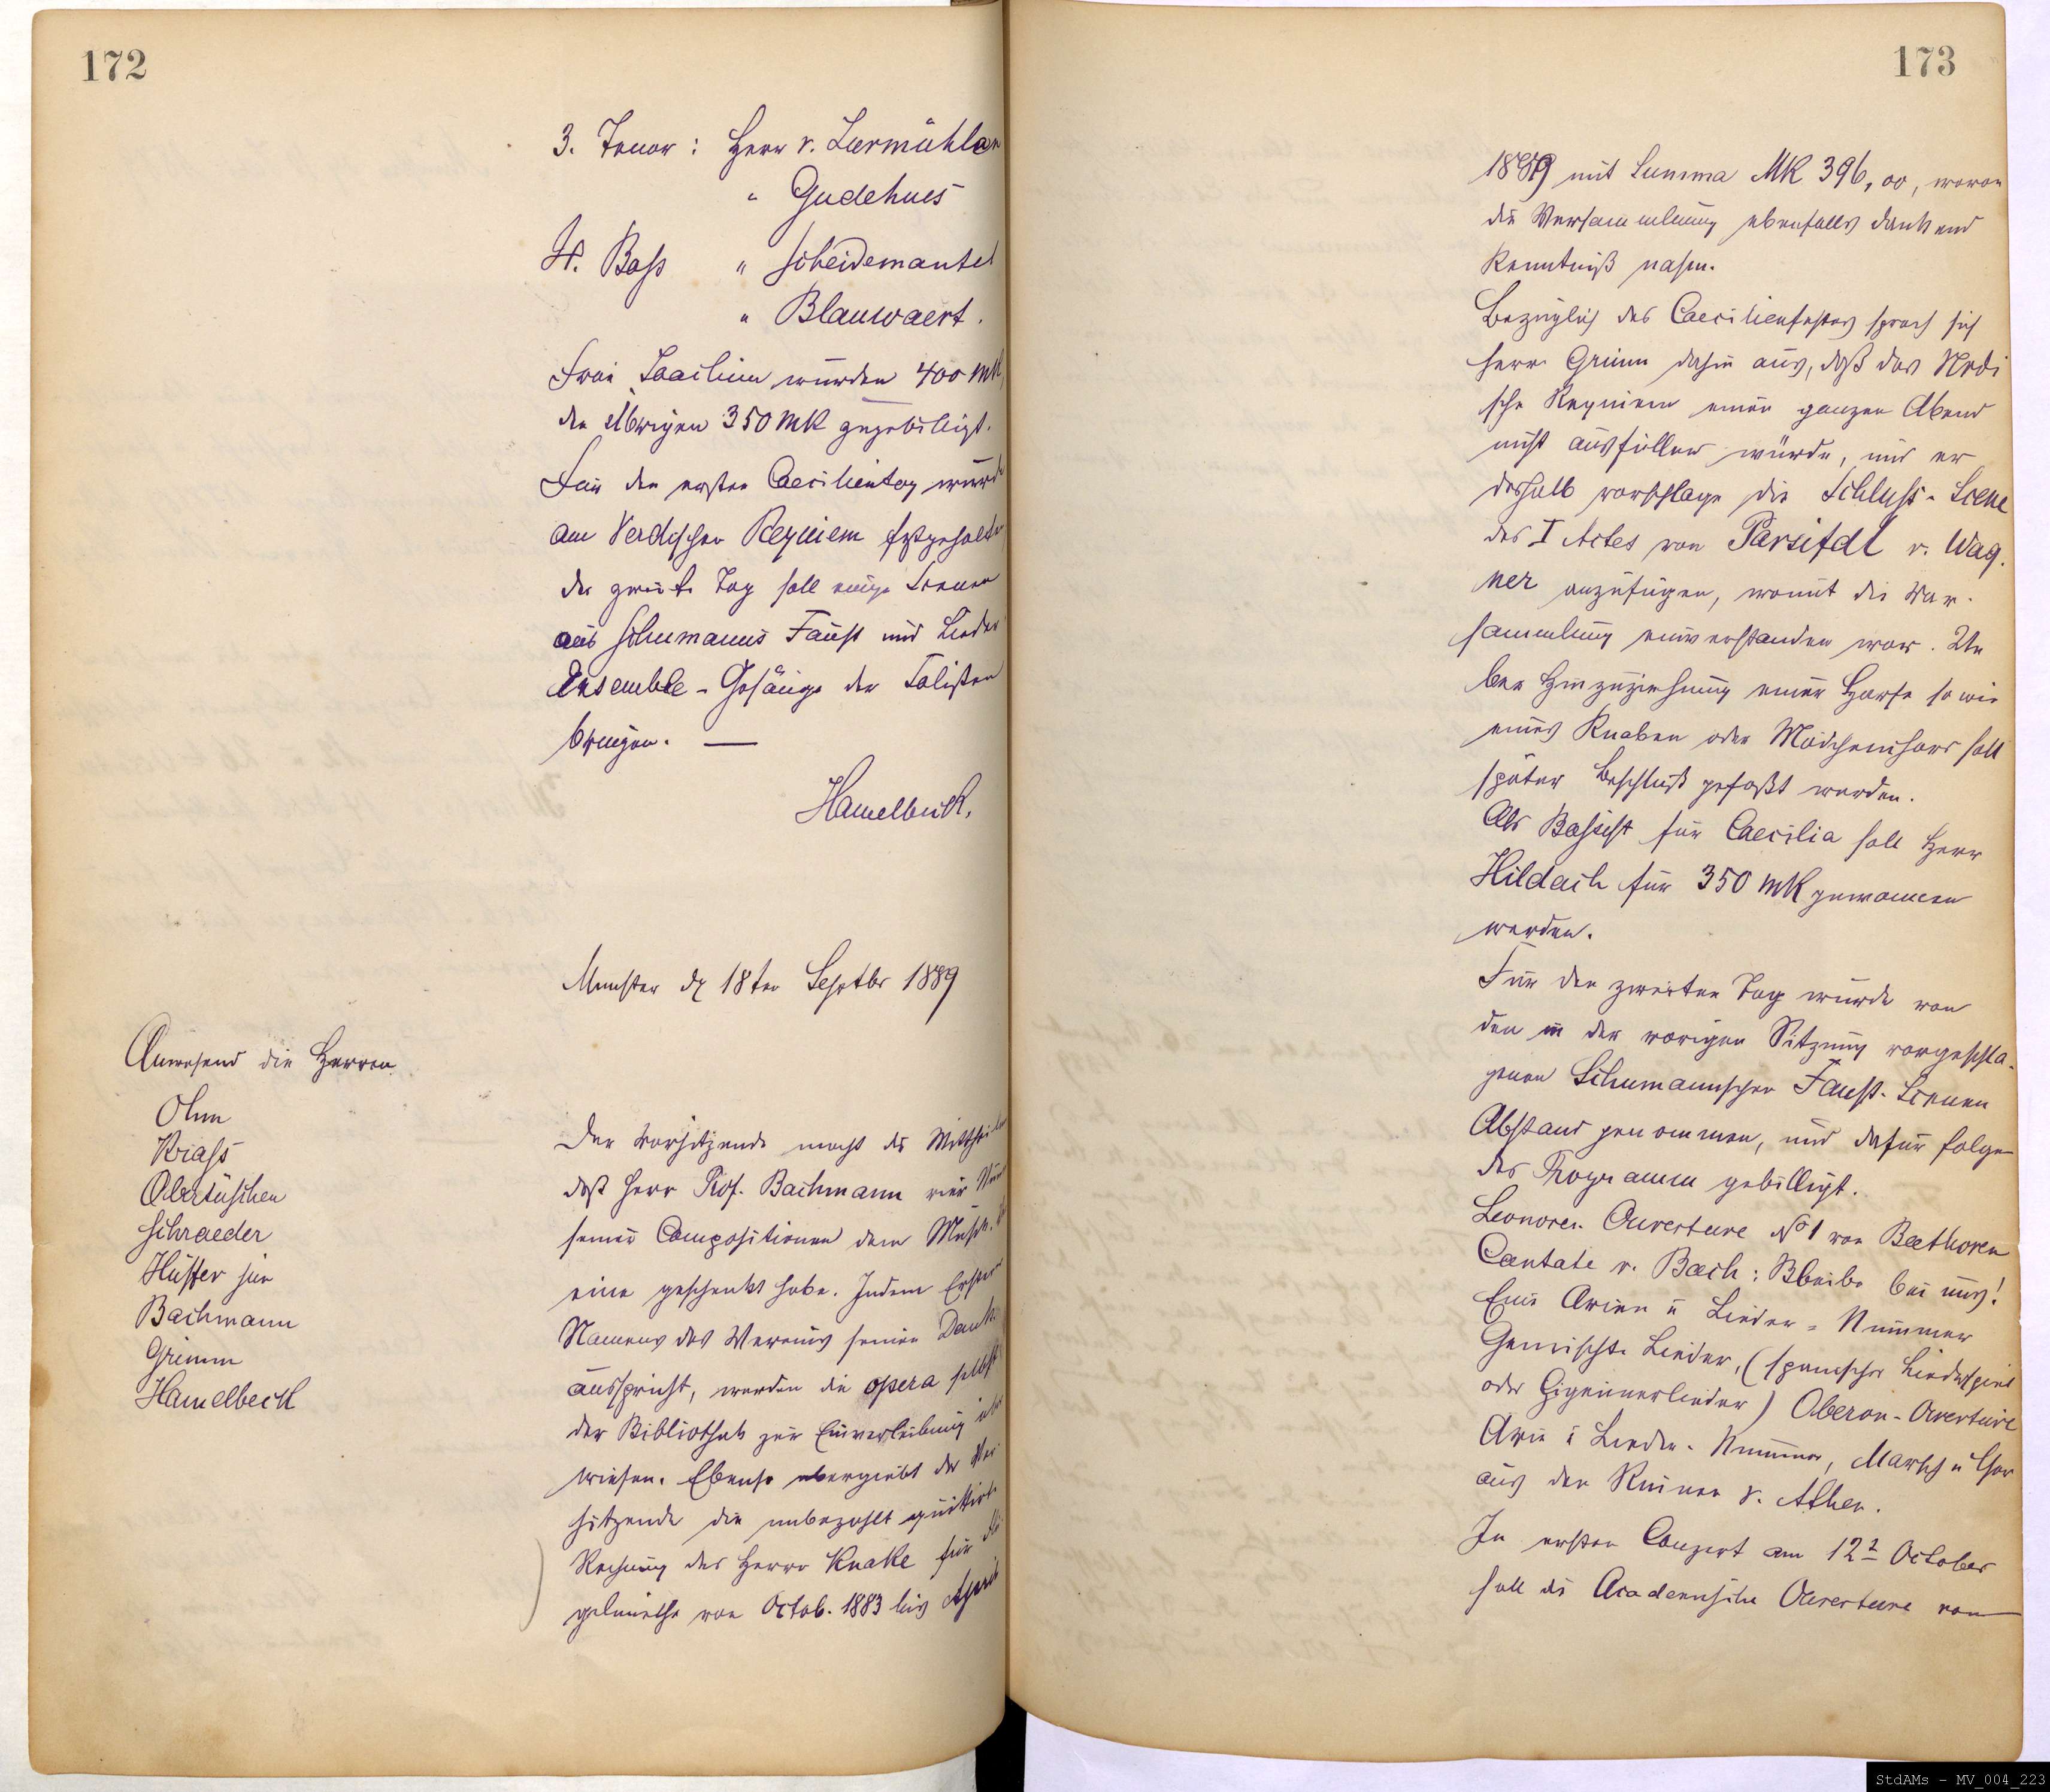 172
3. Tenor: Herr v. Zurmühlen
" Gudehus
4. Bass " Scheidemantel
" Blauwaert.
Frau Joachim wurden 400 Mk,
den Übrigen 350 Mk zugebilligt.
Für den ersten Caecilientag wurde
am Verdischen Requiem festgehalten,
der zweite Tag soll einige Scenen
aus Schumanns Faust und Lieder
Ensemble - Gesänge der Solisten
bringen. —
Hamelbeck.
Munster d 18ten Septbr 1889
Anwesend die Herren
Ohm
Kriass
Obertüschen
Schraeder
Hüffer jun
Bachmann
Grimm
Hamelbeck
Der Vorsitzende macht die
daß Herr Prof. Bachmann vier
seiner Compositionen dem Musik-Ver
eine geschenkt habe. Indem Ersterer
Namens des Vereins seinen Dank
ausspricht, werden die opera selbst
der Bibliothek zur Einverleibung über
wiesen. Ebenso übergiebt der Vor
sitzende die unbezahlt quittirte
Rechnung des Herrn Knake für
gelmiethe von Octob. 1883 bis April
173
1889 mit Summa Mk 396,00, wovon
die Versammlung ebenfalls dankend
Kenntniß nahm.
Bezüglich des Caecilienfestes sprach sich
Herr Grimm dahin aus, daß das Verdi
sche Requiem einen ganzen Abend
nicht ausfüllen würde, und er
deshalb vorschlage die Schluss-Scene
des I Actes von Parsifal v. Wag-
ner anzufügen, womit die Ver-
sammlung einverstanden war. Ue
ber Hinzuziehung einer Harfe sowie
eines Knaben oder Mädchenchors soll
später Beschluß gefaßt werden.
Als Bassist für Caecilia soll Herr
Hildach für 350 Mk gewonnen
werden.
Für den zweiten Tag wurde von
den in der vorigen Sitzung vorgeschla-
genen Schumannschen Faust-Scenen
Abstand genommen, und dafür folgen
des Programm gebilligt.
Leonoren Ouverture No 1 von Beethoven
Cantate v. Bach: Bleibe bei uns!
Eine Arien u Lieder-Nummer
Gemischte Lieder, (spanisches Liederspiel
oder Zigeunerlieder) Oberon-Ouverture
Arie u Lieder-Nummer, Marsch u Chor
aus den Ruinen v. Athen.
Im ersten Conzert am 12t October
soll die Academische Ouverture von
StdAMs - MV_004_223